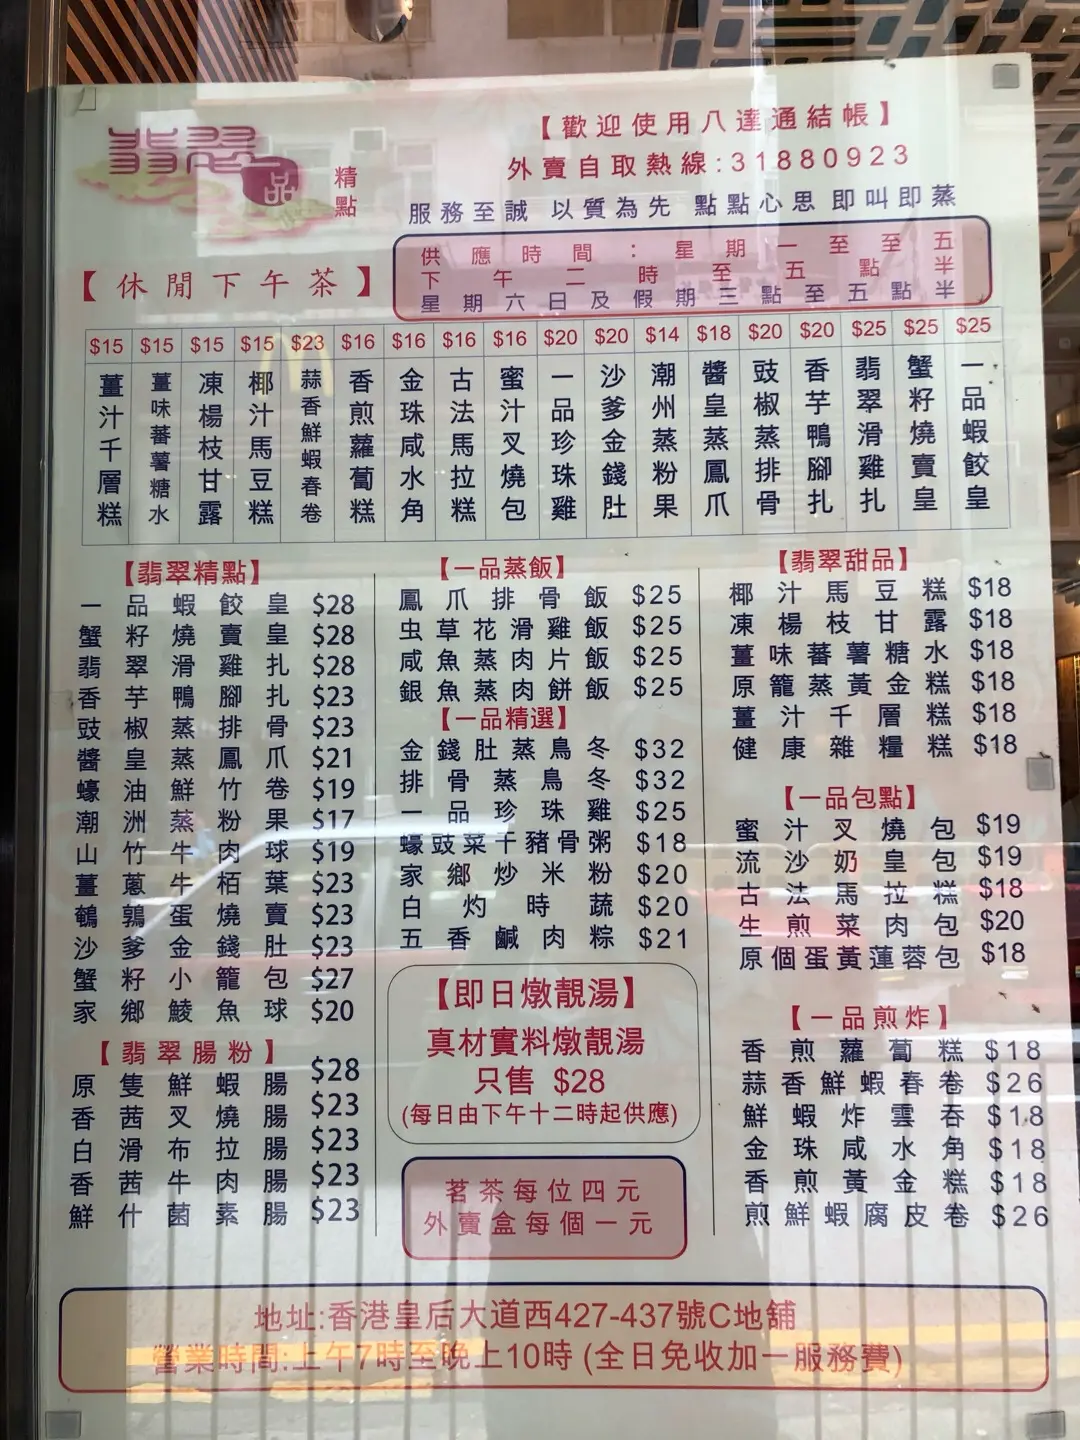 翡翠
一品
精點
【歡迎使用八達通結帳】
外賣自取熱線:31880923
服務至誠 以質為先 點點心思 即叫即蒸
【休閒下午茶】
供應時間：星期一至至五
下午二時至五點半
星期六日及假期三點至五點半
$15 薑汁千層糕
$15 薑味蕃薯糖水
$15 凍楊枝甘露
$15 椰汁馬豆糕
$23 蒜香鮮蝦春卷
$16 香煎蘿蔔糕
$16 金珠咸水角
$16 古法馬拉糕
$16 蜜汁叉燒包
$20 一品珍珠雞
$20 沙爹金錢肚
$14 潮州蒸粉果
$18 醬皇蒸鳳爪
$20 豉椒蒸排骨
$20 香芋鴨腳扎
$25 翡翠滑雞扎
$25 蟹籽燒賣皇
$25 一品蝦餃皇
【翡翠精點】
一品蝦餃皇 $28
蟹籽燒賣皇 $28
翡翠滑雞扎 $28
香芋鴨腳扎 $23
豉椒蒸排骨 $23
醬皇蒸鳳爪 $21
蠔油鮮竹卷 $19
潮洲蒸粉果 $17
山竹牛肉球 $19
薑蔥牛栢葉 $23
鵪鶉蛋燒賣 $23
沙爹金錢肚 $23
蟹籽小籠包 $27
家鄉鯪魚球 $20
【翡翠腸粉】
原隻鮮蝦腸 $28
香茜叉燒腸 $23
白滑布拉腸 $23
香茜牛肉腸 $23
鮮什菌素腸 $23
【一品蒸飯】
鳳爪排骨飯 $25
虫草花滑雞飯 $25
咸魚蒸肉片飯 $25
銀魚蒸肉餅飯 $25
【一品精選】
金錢肚蒸烏冬 $32
排骨蒸烏冬 $32
一品珍珠雞 $25
蠔豉菜干豬骨粥 $18
家鄉炒米粉 $20
白灼時蔬 $20
五香鹹肉粽 $21
【即日燉靚湯】
真材實料燉靚湯
只售 $28
(每日由下午十二時起供應)
茗茶每位四元
外賣盒每個一元
【翡翠甜品】
椰汁馬豆糕 $18
凍楊枝甘露 $18
薑味蕃薯糖水 $18
原籠蒸黃金糕 $18
薑汁千層糕 $18
健康雜糧糕 $18
【一品包點】
蜜汁叉燒包 $19
流沙奶皇包 $19
古法馬拉糕 $18
生煎菜肉包 $20
原個蛋黃蓮蓉包 $18
【一品煎炸】
香煎蘿蔔糕 $18
蒜香鮮蝦春卷 $26
鮮蝦炸雲吞 $18
金珠咸水角 $18
香煎黃金糕 $18
煎鮮蝦腐皮卷 $26
地址:香港皇后大道西427-437號C地舖
營業時間:上午7時至晚上10時 (全日免收加一服務費)